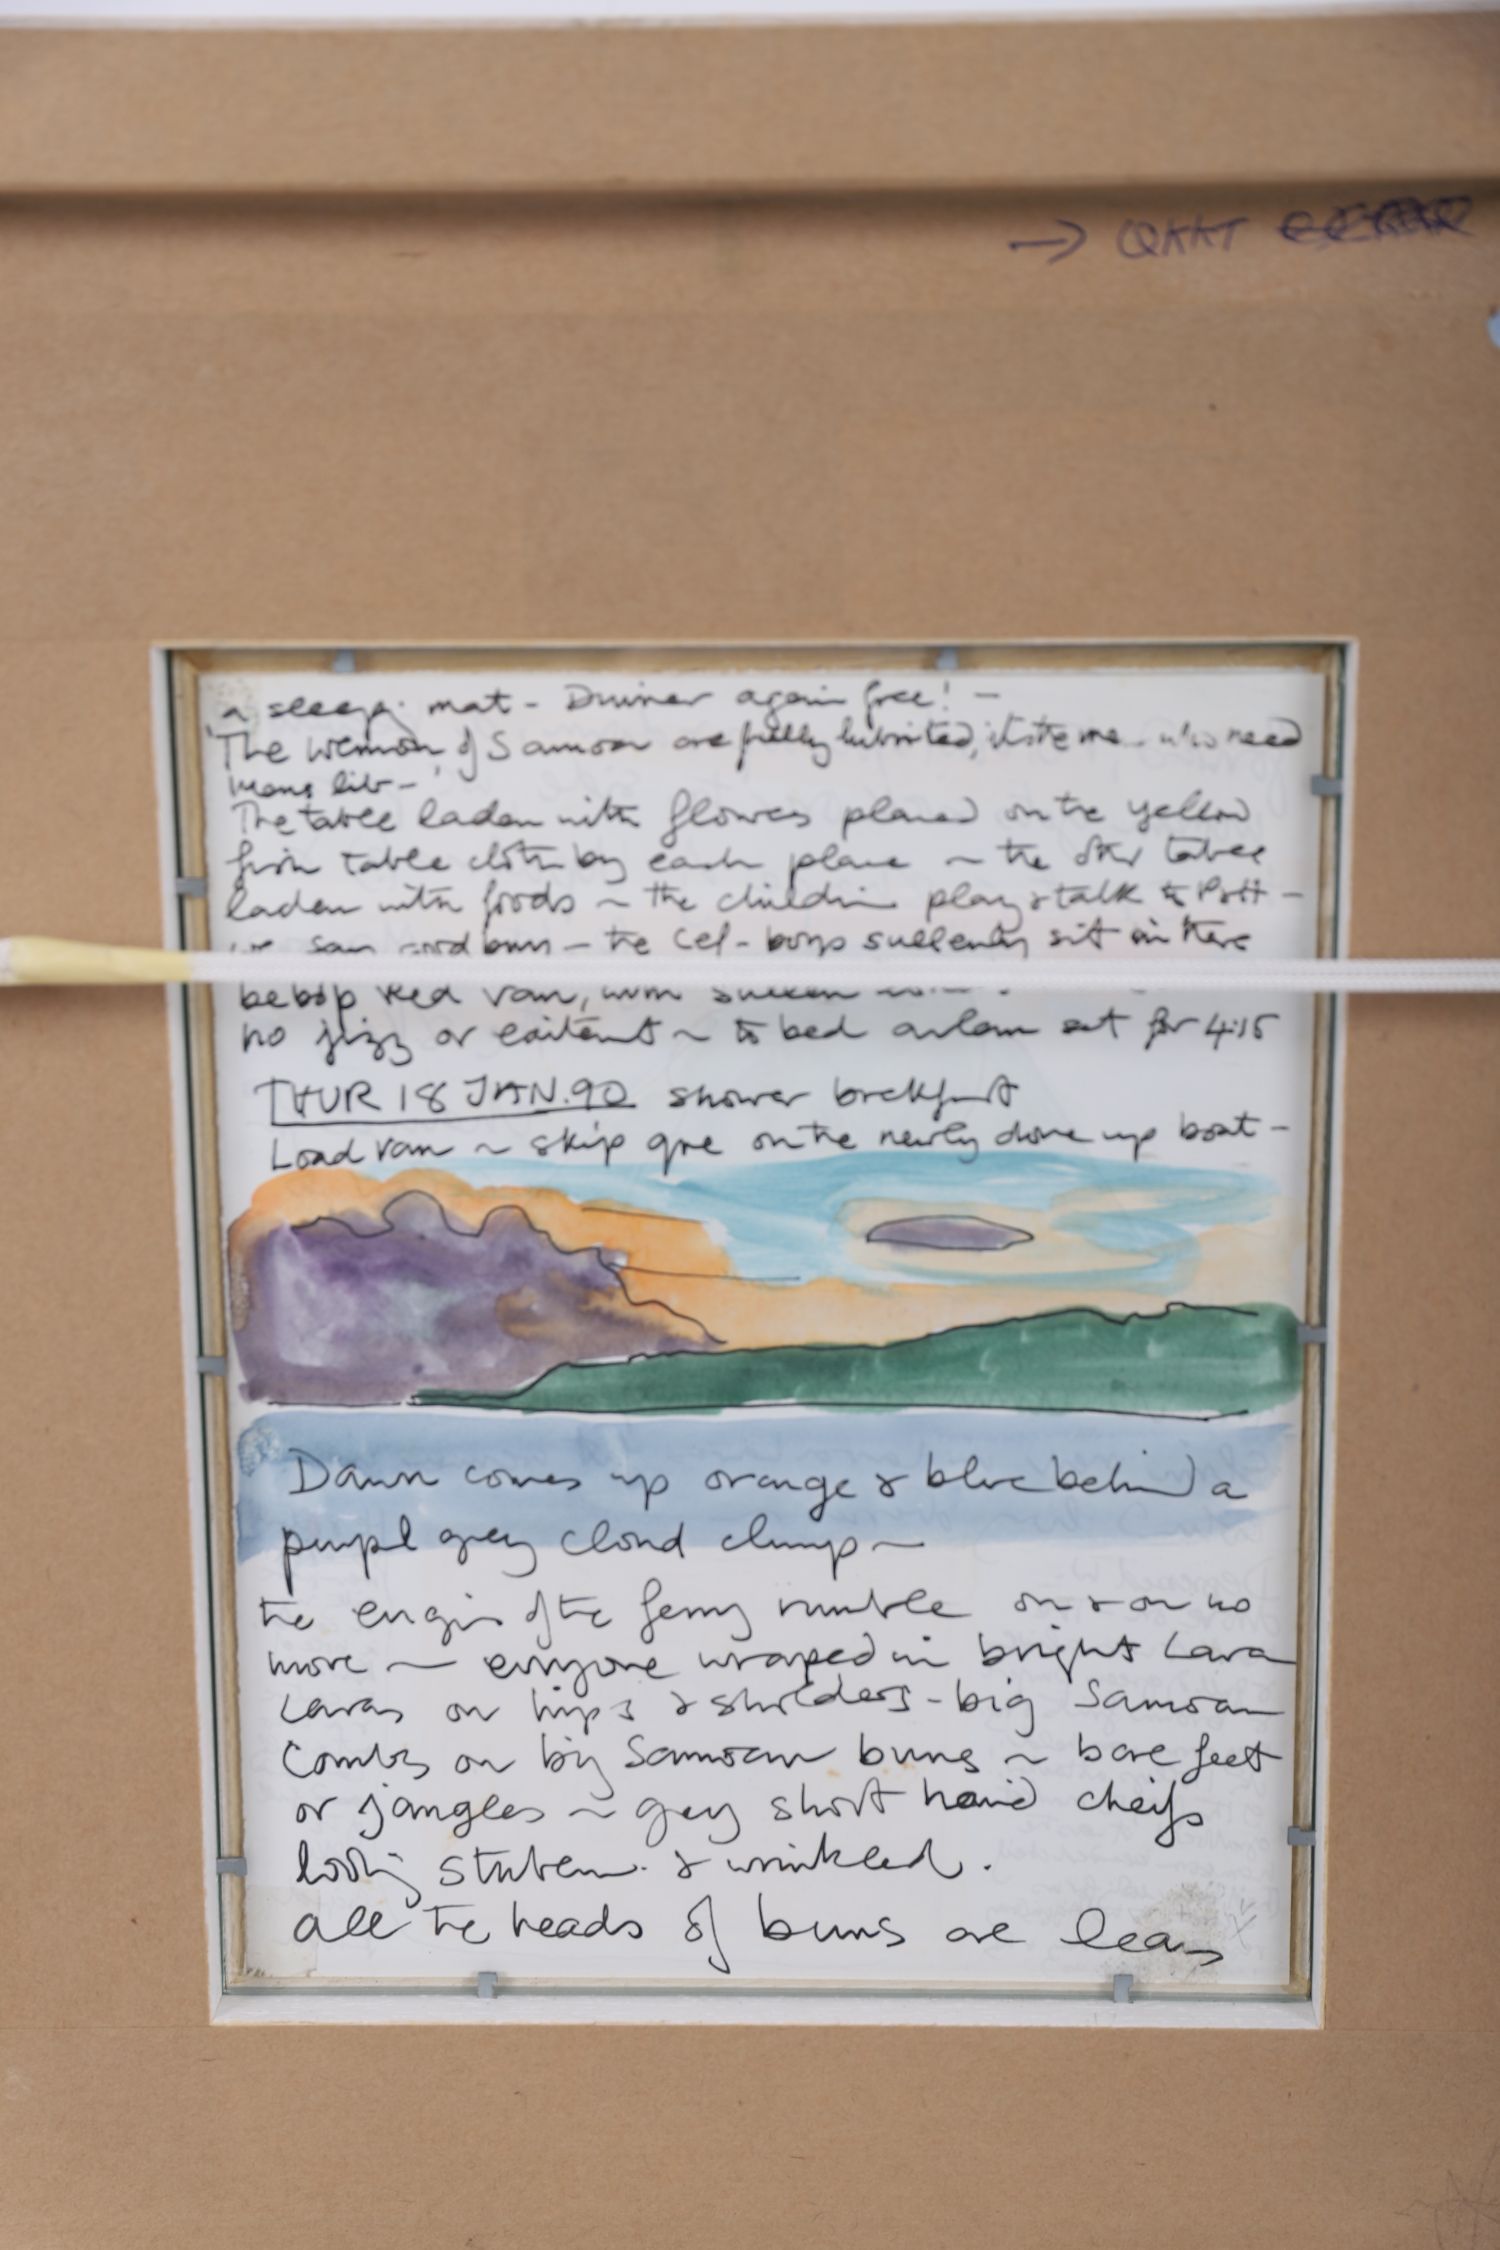 a sleepg. mat - Dinner again free! -
'The Wemon of Samoa are fully lubrited, its the me.. who need
mens lib - '
The table laden with flowers placed on the yellow
fish table cloth by each place ~ the other table
laden with foods ~ the children play & talk to Patt -
we say good buy - the Cef - boys sullenly sit in there
bebop Red Van, with sullen
no jizz or exitement ~ to bed alarm set for 4:15
THUR 18 JAN. 90 shower breckfast
Load van ~ skip on the newly done up boat -
Dawn comes up orange & blue behind a
purpel grey cloud clump ~
the engin of the ferry rumble on & on no
more ~ everyone wraped in bright Lava
Lavas on hips & shoulders - big Samoan
Combs on big Samoan buns ~ bare feet
or jangles ~ grey short haird cheifs
looking stubern. & wrinkled.
all the heads of buns are